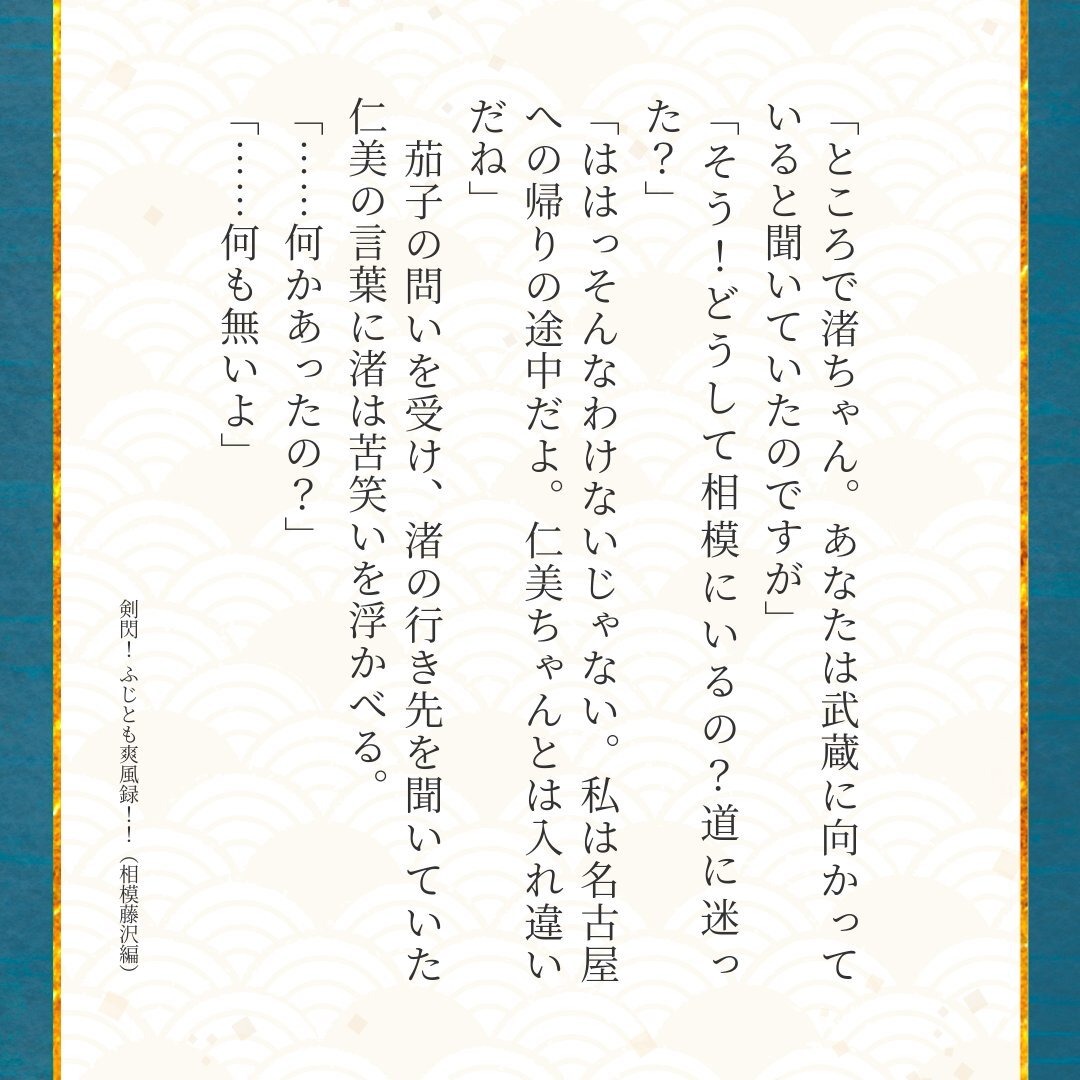 「ところで渚ちゃん。あなたは武蔵に向かって
いると聞いていたのですが」
「そう！どうして相模にいるの？道に迷っ
た？」
「ははっそんなわけないじゃない。私は名古屋
への帰りの途中だよ。仁美ちゃんとは入れ違い
だね」
　茄子の問いを受け、渚の行き先を聞いていた
仁美の言葉に渚は苦笑いを浮かべる。
「……何かあったの？」
「……何も無いよ」
剣閃！ふじとも爽風録！！（相模藤沢編）